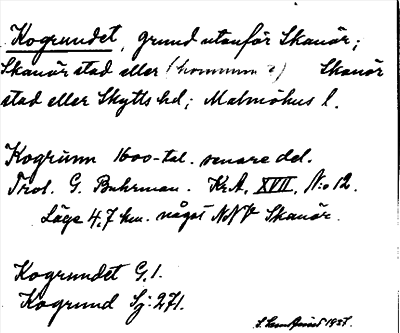 Kogrundet, grund utanför Skanör;
Skanör stad eller (kommun?) Skanör
stad eller Skytts hd; Malmöhus l.
Kogrunn 1600-tal. senare del.
Trol. G. Buhrman. Kr.A. XVII, N:o 12.
Läge 4,7 km. något NNV Skanör.
Kogrundet G.1.
Kogrund Sj: 271.
1937.